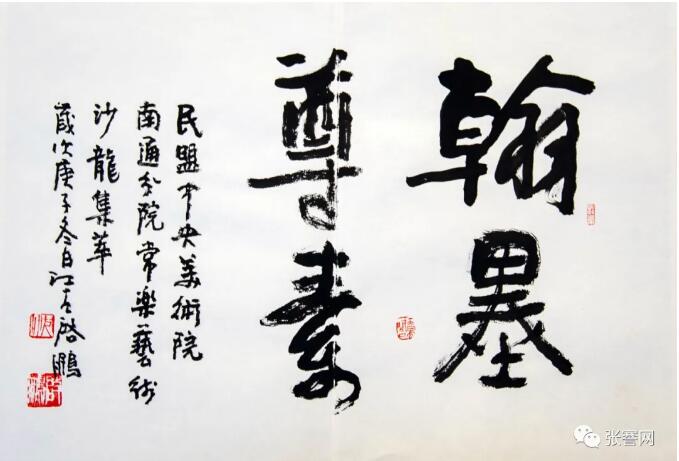 翰墨
尊素
民盟中央美術院
南通分院常樂藝術
沙龍集萃
歲次庚子冬日江左啓鵬
张謇网